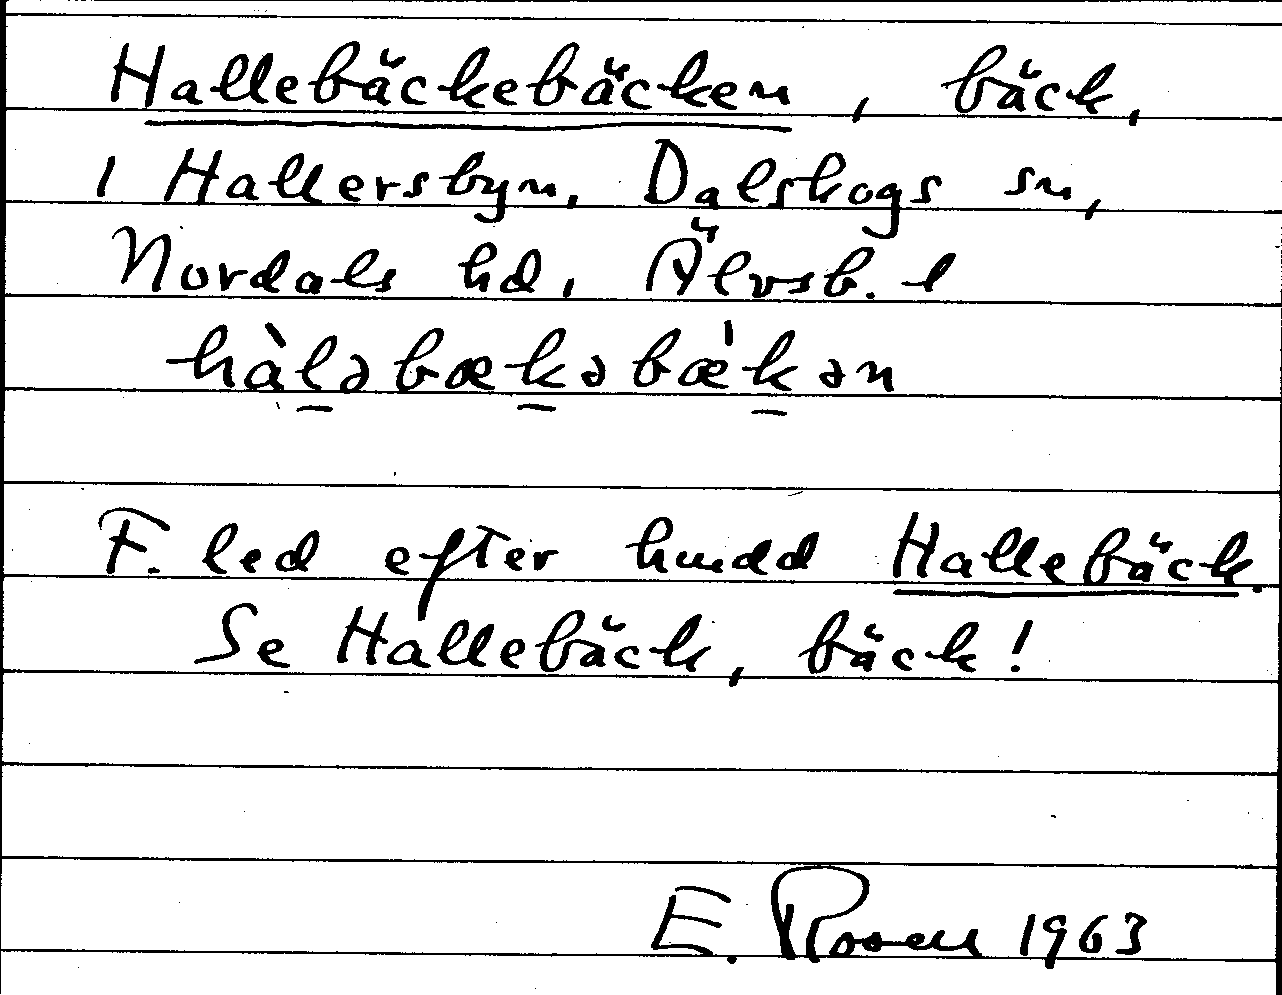 Hallebäckebäcken, bäck,
i Hallersbyn, Dalskogs sn,
Nordals hd, Älvsb. l
hàl̲əbæk̲əbæ̀k̲ən
F. led efter huvdd Hallebäck.
Se Hallebäck, bäck!
E. Rosell 1963